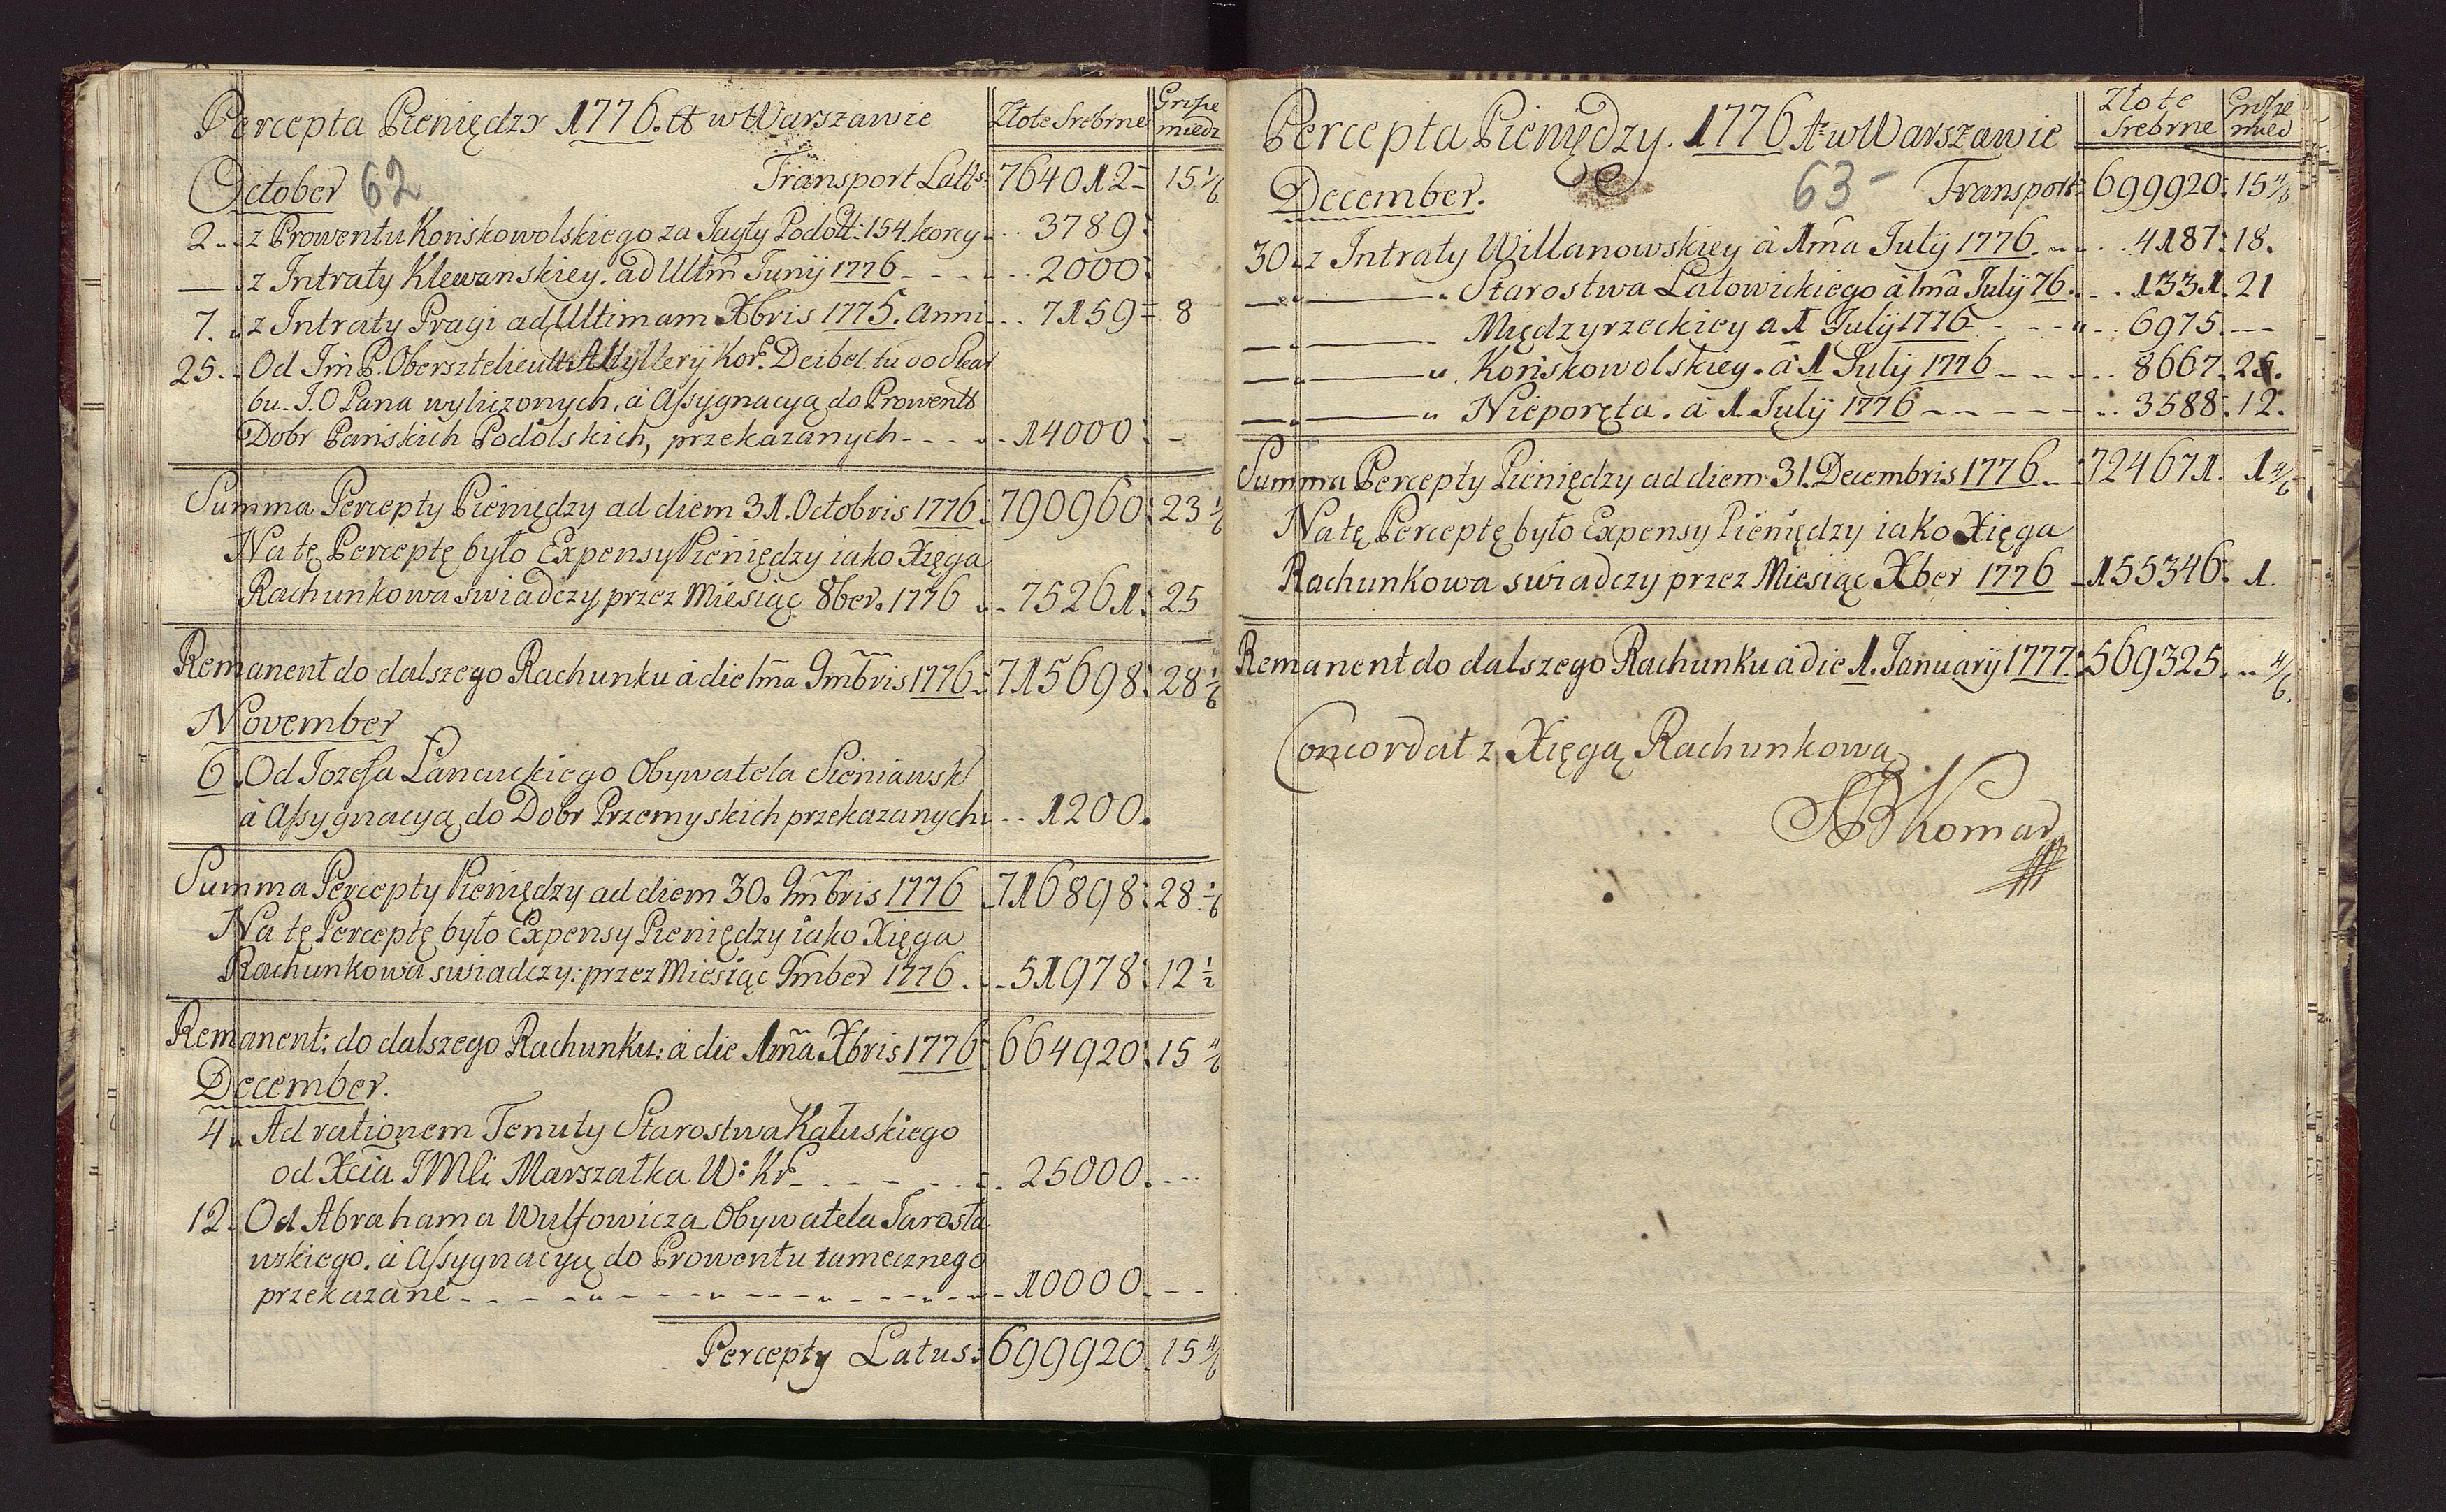 Percepta Pieniędzy 1776. A w Warszawie Złote Srebrne Grosze miedz
October 62 Transport Latts: 764012 15 1/6
2 z Prowentu Konskowolskiego za Jagły Podolt: 154. korcy 3789
z Intraty Klewanskiey. ad Ultm Junij 1776 2000
7. z Intraty Pragi ad Ultimam Xbris 1775. Anni 7159 8
25. Od Jm P. Obersztelieut: Artylleryi Kor. Deibel. tu do Skar
bu J.O Pana wyliczonych, á Assygnacyą do Prowentu
Dobr Pańskich Podolskich, przekazanych 14000
Summa Percepty Pieniędzy ad diem 31. Octobris 1776 790960 23 1/6
Na tę Perceptę było Expensy Pieniędzy iako Xięga
Rachunkowa swiadczy przez Miesiąc 8ber. 1776 75261 25
Remanent do dalszego Rachunku á die 1ma 9mbris 1776 715698 28 1/6
November
6 Od Jozefa Lanauckiego Obywatela Sieniawsk
á Assygnacyą do Dobr Przemyskich przekazanych 1200.
Summa Percepty Pieniędzy ad diem 30. 9mbris 1776 716898 28 1/6
Na tę Perceptę było Expensy Pieniędzy iako Xięga
Rachunkowa swiadczy: przez Miesiąc 9mber 1776 51978 12 1/2
Remanent: do dalszego Rachunku: á die 1ma Xbris 1776 664920 15 4/6
December.
4 Ad rationem Tenuty Starostwa Kałuskiego
od Xcia JMci Marszałka W: Kr 25000
12. Od Abrahama Wulfowicza Obywatela Jarosła
wskiego. á Assygnacyą do Prowentu tamecznego
przekazane 10000
Percepty Latus: 699920 15 4/6
Percepta Pieniędzy. 1776 A w Warszawie Złote Srebrne Grosze mied
December. 63 Transport 699920 15 4/6
30 z Intraty Willanowskiey á 1ma Julij 1776 4187 18.
Starostwa Latowickiego á 1ma Julij 76. 1331. 21
Międzyrzeckiey a 1 Julij 1776 6975.
Końskowolskiey. á 1 Julij 1776 8667. 25.
Nieporęta. á 1 Julij 1776 3588. 12.
Summa Percepty Pieniędzy ad diem 31. Decembris 1776 724671. 1 4/6
Na tę Perceptę było Expensy Pieniędzy iako Xięga
Rachunkowa swiadczy przez Miesiąc Xber 1776 155346. 1
Remanent do dalszego Rachunku á die 1. Januarij 1777. 569325. 4/6
Concordat z Xięgą Rachunkową
AB Komar